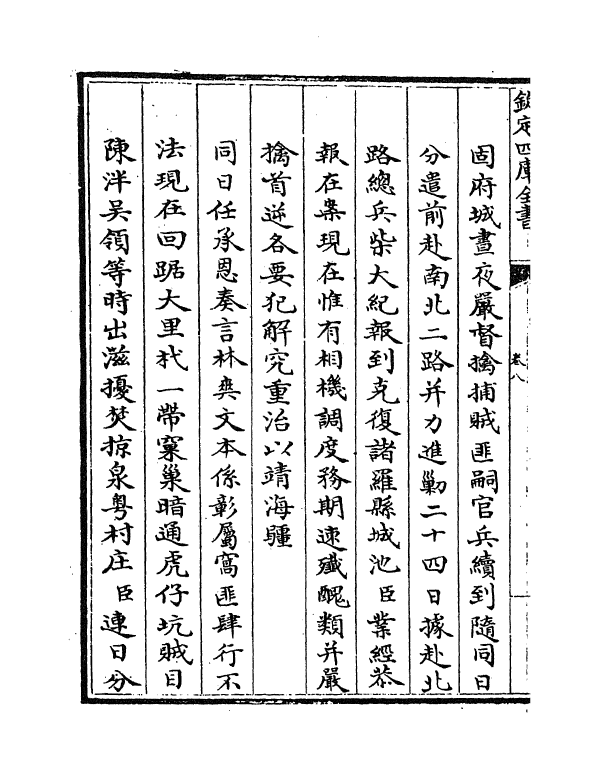 欽定四庫全書
卷八
固府城晝夜嚴督擒捕賊匪嗣官兵續到隨同日
分遣前赴南北二路并力進勦二十四日據赴北
路總兵柴大紀報到克復諸羅縣城池臣業經恭
報在案現在惟有相機調度務期速殲醜類并嚴
擒首逆各要犯解究重治以靖海疆
同日任承恩奏言林爽文本係彰屬窩匪肆行不
法現在回踞大里杙一帶窠巢暗通虎仔坑賊目
陳泮吳領等時出滋擾焚掠泉粵村庄臣連日分